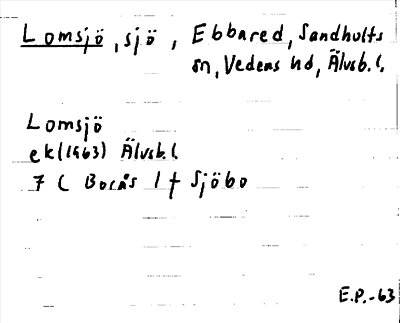 Lomsjö, sjö, Ebbared, Sandhults
sn, Vedens hd, Älvsb.l.
Lomsjö
ek (1963) Älvsb.l.
7 C Borås 1 f Sjöbo
E.P.-63